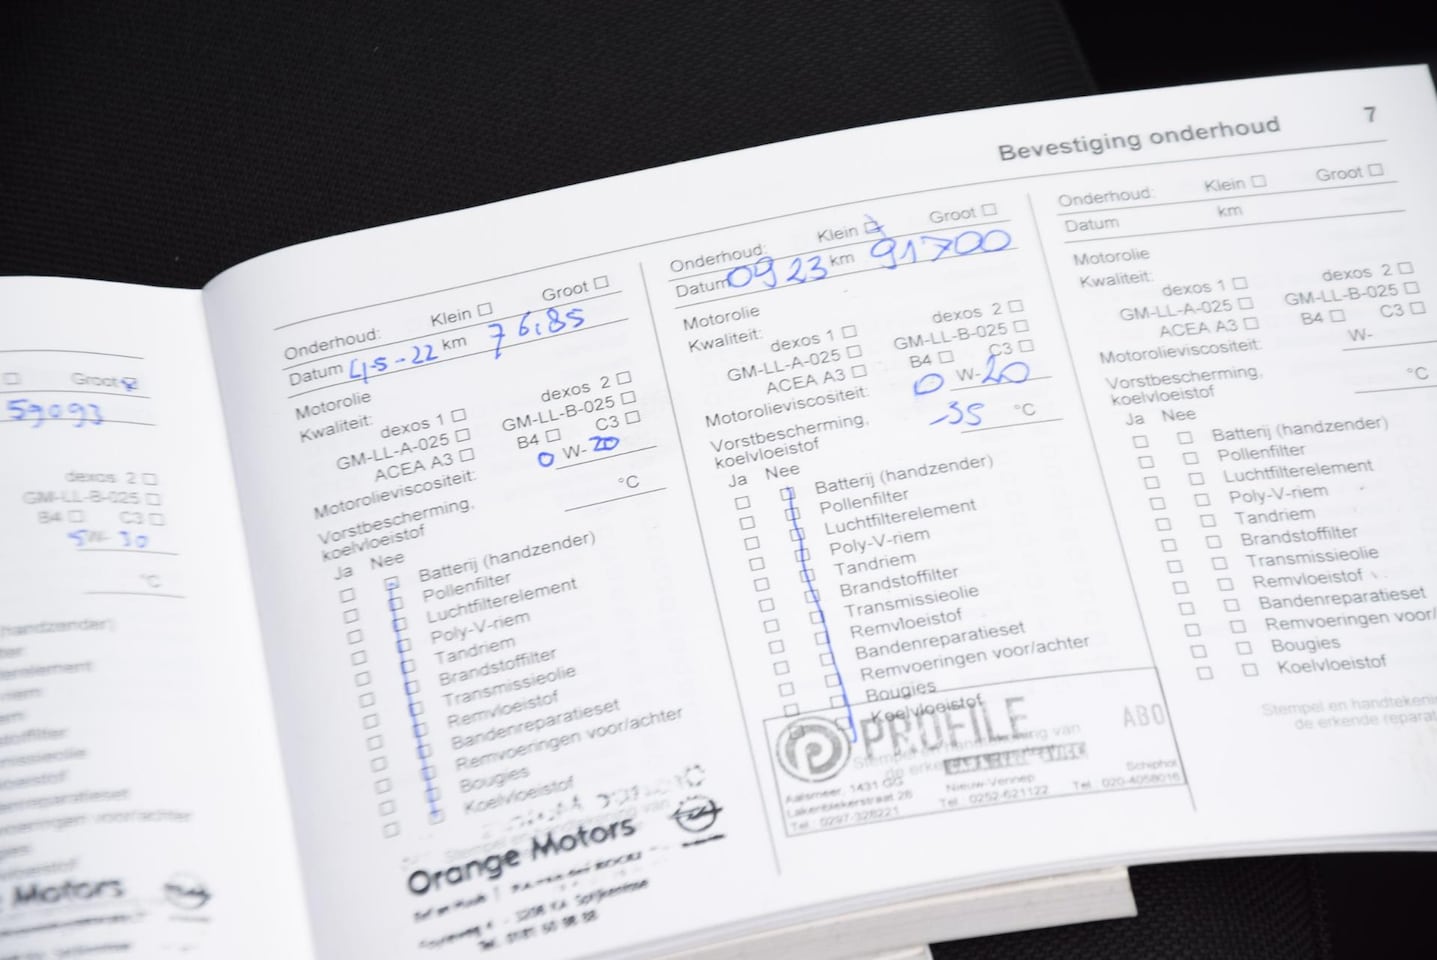 Bevestiging onderhoud 7
Groot
59093
dexos 2
GM-LL-B-025
B4 C3
5 W- 30
°C
(handzender)
Motors
Onderhoud: Klein Groot
Datum 4-5-22 km 76.85
Motorolie
Kwaliteit: dexos 1 dexos 2
GM-LL-A-025 GM-LL-B-025
ACEA A3 B4 C3
Motorolieviscositeit: 0 W- 20
Vorstbescherming,
koelvloeistof °C
Ja Nee
Batterij (handzender)
Pollenfilter
Luchtfilterelement
Poly-V-riem
Tandriem
Brandstoffilter
Transmissieolie
Remvloeistof
Bandenreparatieset
Remvoeringen voor/achter
Bougies
Koelvloeistof
Orange Motors
Onderhoud: Klein Groot
Datum 09 23 km 91700
Motorolie
Kwaliteit: dexos 1 dexos 2
GM-LL-A-025 GM-LL-B-025
ACEA A3 B4 C3
Motorolieviscositeit: 0 W- 20
Vorstbescherming,
koelvloeistof -35 °C
Ja Nee
Batterij (handzender)
Pollenfilter
Luchtfilterelement
Poly-V-riem
Tandriem
Brandstoffilter
Transmissieolie
Remvloeistof
Bandenreparatieset
Remvoeringen voor/achter
Bougies
Koelvloeistof
PROFILE ABO
Aalsmeer, 1431 GG Nieuw-Vennep Schiphol
Tel.: 0252-621122 Tel.: 020-4058016
Tel.: 0297-326221
Onderhoud: Klein Groot
Datum km
Motorolie
Kwaliteit: dexos 1 dexos 2
GM-LL-A-025 GM-LL-B-025
ACEA A3 B4 C3
Motorolieviscositeit: W-
Vorstbescherming,
koelvloeistof °C
Ja Nee
Batterij (handzender)
Pollenfilter
Luchtfilterelement
Poly-V-riem
Tandriem
Brandstoffilter
Transmissieolie
Remvloeistof
Bandenreparatieset
Remvoeringen voor/
Bougies
Koelvloeistof
Stempel en handtekeni
de erkende reparat